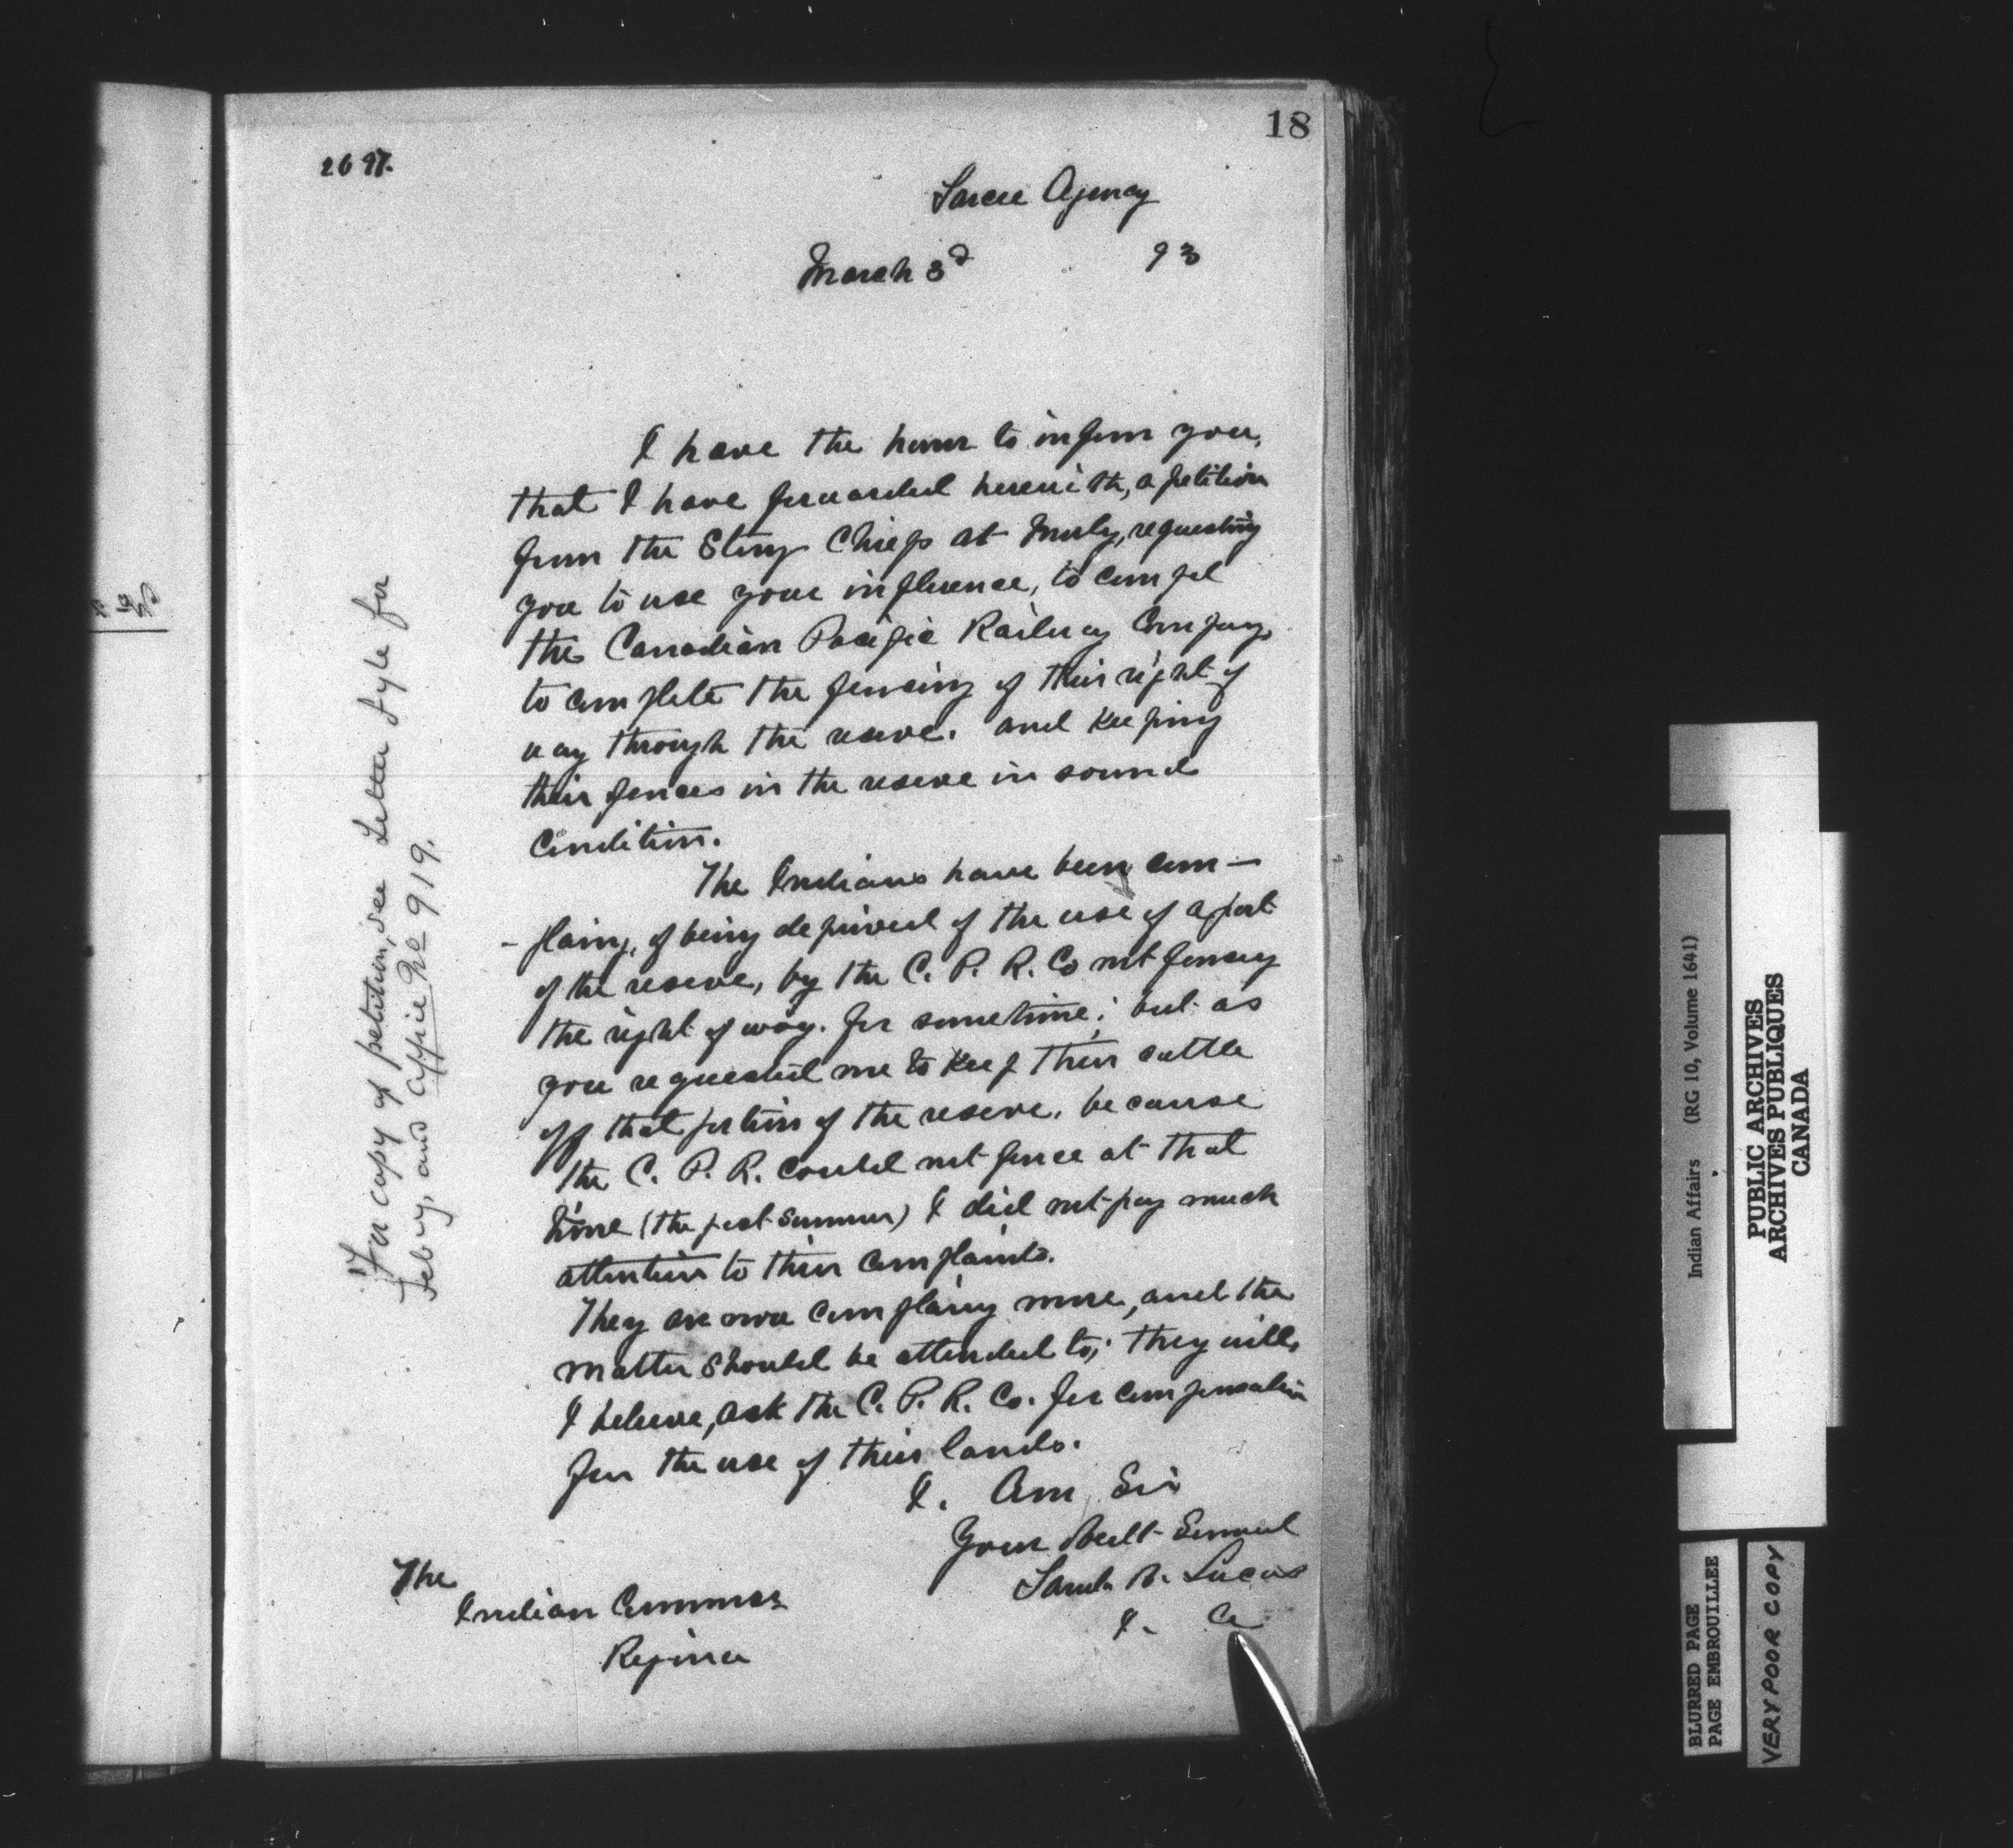 18
2697.
Sarcee Agency
March 3d 93
I have the honor to inform you,
that I have forwarded herewith, a petition
from the Stony Chiefs at Morly, requesting
you to use your influence, to compel
the Canadian Pacific Railway Company,
to complete the fencing of their right of
way through the reserve. and keeping
their fences in the reserve in sound
condition.
The Indians have been com-
-plaing, of being deprived of the use of a part
of the reserve, by the C. P. R. Co not fencing
the right of way. for sometime; but as
you requested me to keep their cattle
off that portion of the reserve, because
the C. P. R. could not fence at that
time (the past summer) I did not pay much
attention to their complaints.
They are now complaing more, and the
matter should be attended to; they will,
I believe, ask the C. P. R. Co. for compensation
for the use of their lands.
I. Am Sir
Your Obedt Servant
Saml. B. Lucas
I. A
The
Indian Commssr
Regina
For copy of petition, see Letter Fyle for
Feby, and office No 919.
Indian Affairs (RG 10, Volume 1641)
PUBLIC ARCHIVES
ARCHIVES PUBLIQUES
CANADA
BLURRED PAGE
PAGE EMBROUILLEE
VERY POOR COPY